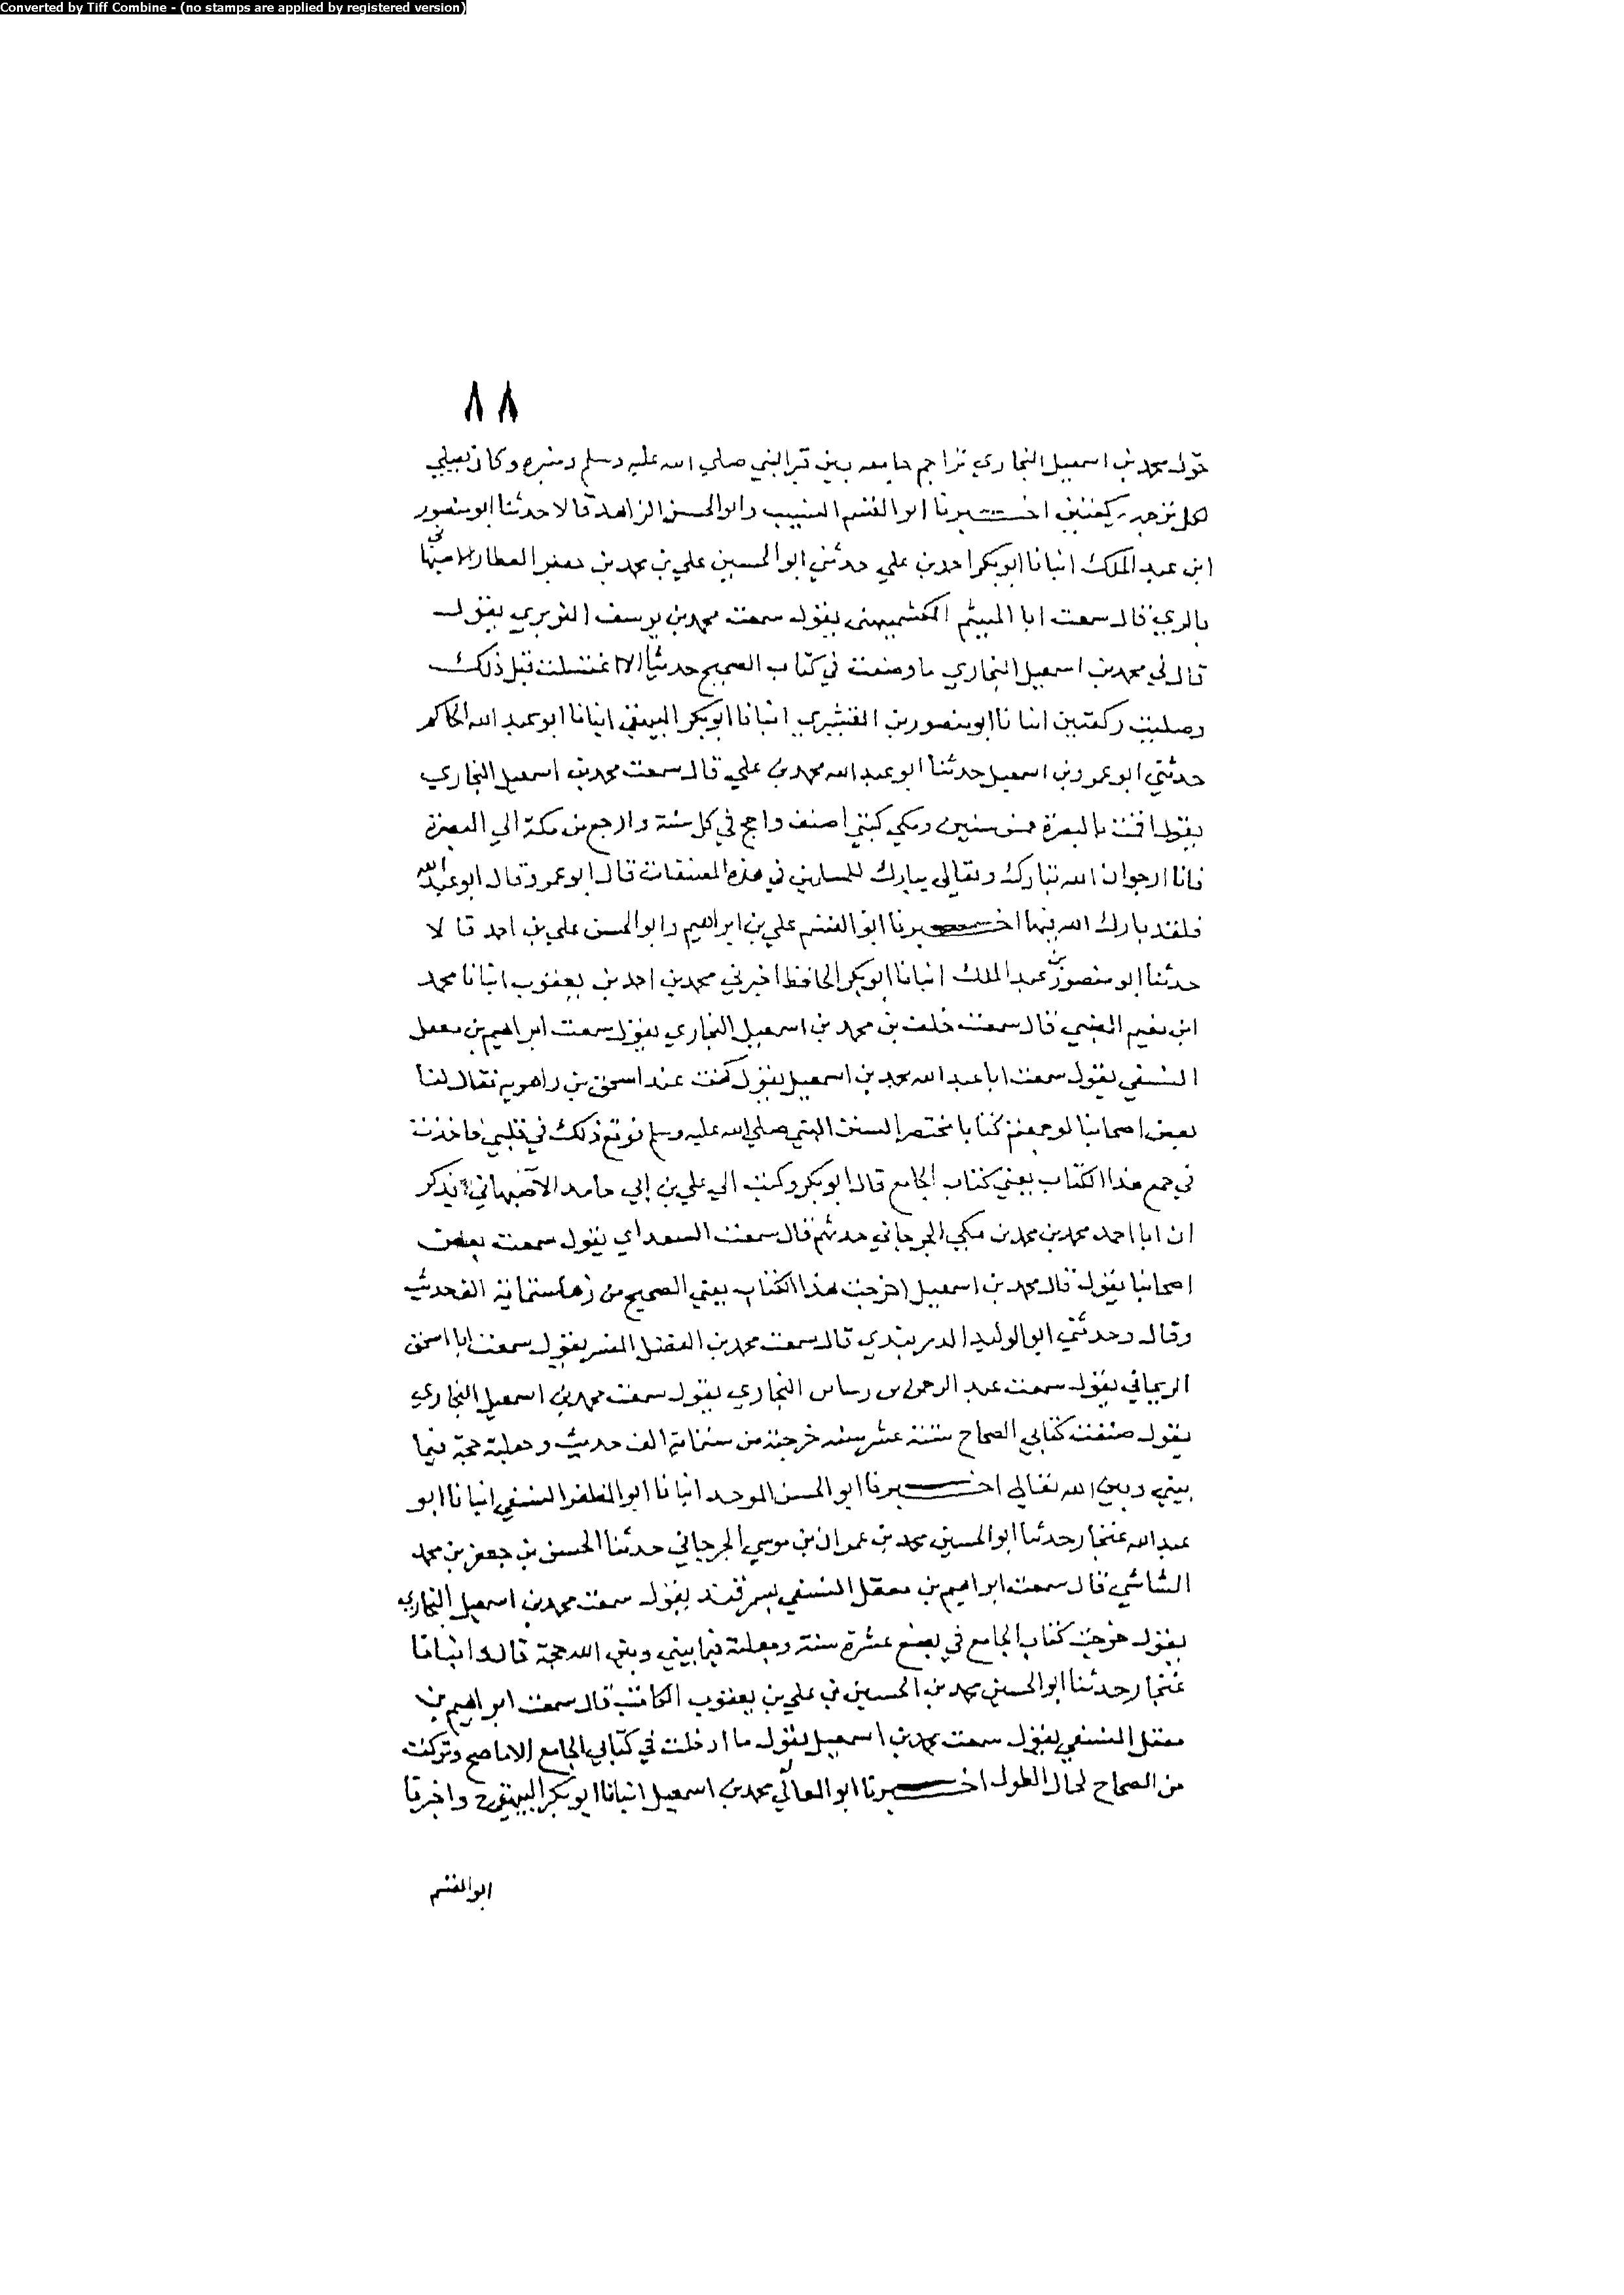 Converted by Tiff Combine - (no stamps are applied by registered version)
٨٨
حول محمد بن اسمعيل البخاري تراجم جامعه بين قبر النبي صلي الله عليه وسلم ومنبره وكان يصلي
لكل ترجمة ركعتين اخبرنا ابو القسم النسيب وابو الحسن الزاهد قالا حدثنا ابو منصور
ابن عبد الملك انبانا ابو بكر احمد بن علي حدثني ابو الحسين علي بن محمد بن جعفر العطار الاصبهاني
بالري قال سمعت ابا الهيثم الكشميهني يقول سمعت محمد بن يوسف الفربري يقول
قال لي محمد بن اسمعيل البخاري ما وضعت في كتاب الصحيح حديثا الا اغتسلت قبل ذلك
وصليت ركعتين انبانا ابو منصور بن القشيري انبانا ابو بكر البيهقي انبانا ابو عبد الله الحاكم
حدثني ابو عمرو بن اسمعيل حدثنا ابو عبد الله محمد بن علي قال سمعت محمد بن اسمعيل البخاري
يقول اقمت بالبصرة خمس سنين ومعي كتبي اصنف واحج في كل سنة وارجع من مكة الي البصرة
فانا ارجوا ان الله تبارك وتعالي يبارك للمسلمين في هذه المصنفات قال ابو عمرو قال ابو عبد الله
فلقد بارك الله فيها اخبرنا ابو القسم علي بن ابراهيم وابو الحسن علي بن احمد قالا
حدثنا ابو منصور بن عبد الملك انبانا ابو بكر الحافظ اخبرني محمد بن احمد بن يعقوب انبانا محمد
ابن نعيم الضبي قال سمعت خلف بن محمد بن اسمعيل البخاري يقول سمعت ابراهيم بن معقل
النسفي يقول سمعت ابا عبد الله محمد بن اسمعيل يقول كنت عند اسحق بن راهويه فقال لنا
بعض اصحابنا لو جمعتم كتابا مختصرا لسنن النبي صلي الله عليه وسلم فوقع ذلك في قلبي فاخذت
في جمع هذا الكتاب يعني كتاب الجامع قال ابو بكر وكتب الي علي بن ابي حامد الاصبهاني يذكر
ان ابا احمد محمد بن محمد بن مكي الجرجاني حدثهم قال سمعت السعداي يقول سمعت بعض
اصحابنا يقول قال محمد بن اسمعيل اخرجت هذا الكتاب يعني الصحيح من زها ستمائة الف حديث
وقال وحدثني ابو الوليد الدربندي قال سمعت محمد بن الفضل المفسر يقول سمعت ابا اسحق
الريحاني يقول سمعت عبد الرحمن بن رساس البخاري يقول سمعت محمد بن اسمعيل البخاري
يقول صنفت كتابي الصحاح ستة عشر سنة خرجته من ستمائة الف حديث وجعلته حجة فيما
بيني وبين الله تعالي اخبرنا ابو الحسن الموحد انبانا ابو المظفر النسفي انبانا ابو
عبد الله غنجار حدثنا ابو الحسين محمد بن عمران بن موسي الجرجاني حدثنا الحسن بن جعفر بن محمد
الشاشي قال سمعت ابراهيم بن معقل النسفي بسمرقند يقول سمعت محمد بن اسمعيل البخاري
يقول خرجت كتاب الجامع في بضع عشرة سنة وجعلته فيما بيني وبين الله حجة قال وانبانا
غنجار حدثنا ابو الحسين محمد بن الحسين بن علي بن يعقوب الكاتب قال سمعت ابراهيم بن
معقل النسفي يقول سمعت محمد بن اسمعيل يقول ما ادخلت في كتابي الجامع الا ما صح وتركت
من الصحاح لحال الطول اخبرنا ابو المعالي محمد بن اسمعيل انبانا ابو بكر البيهقي ح واخبرنا
ابو القسم